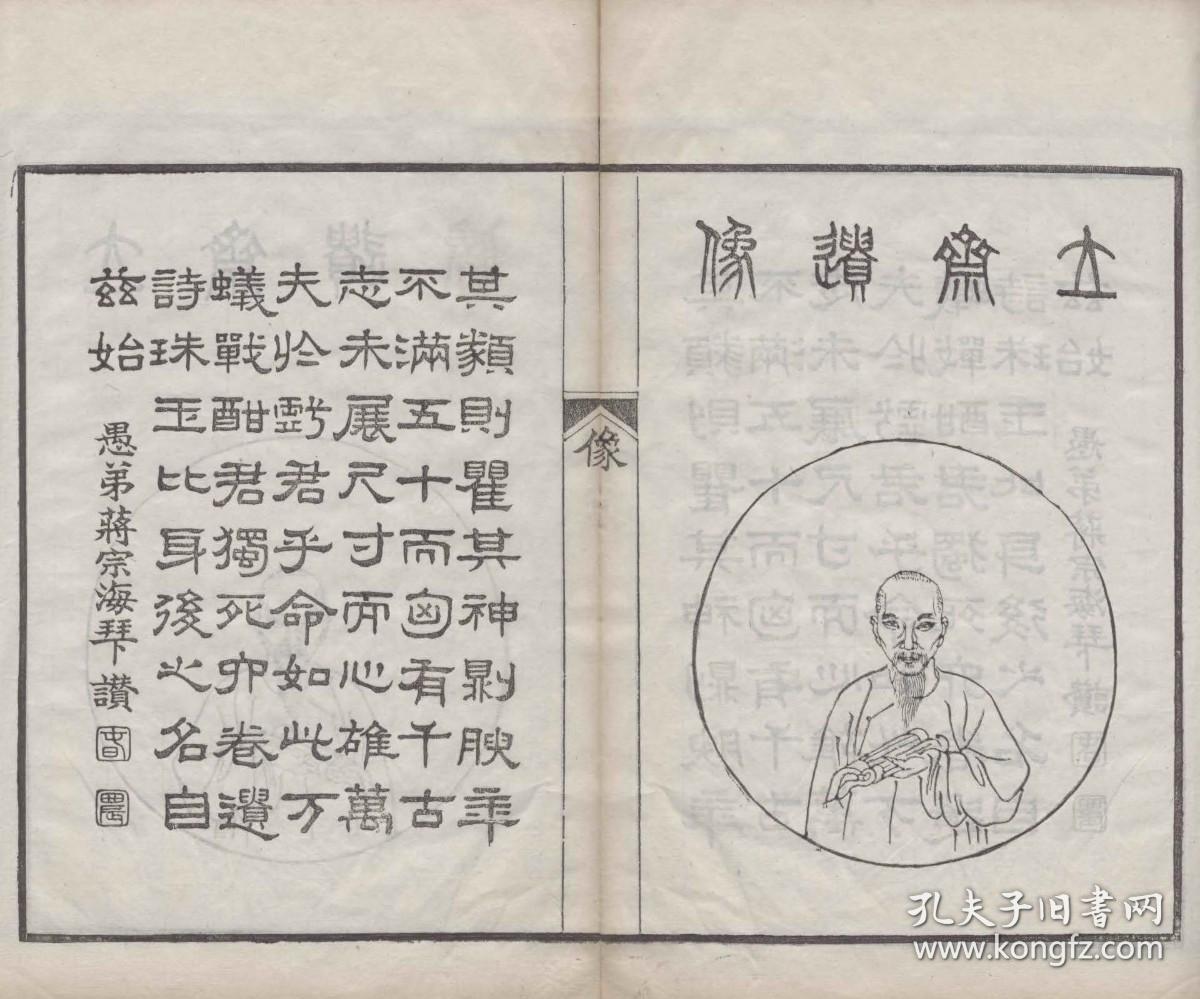 立齋遺像
像
其䫉則瞿其神則腴年
不滿五十而匈有千古
志未展尺寸而心雄萬
夫於戲君乎命如此方
蟻戰酣君獨死卷遺
詩珠玉比身後之名自
茲始
愚弟蔣宗海拜讚
孔夫子旧書网
www.kongfz.com